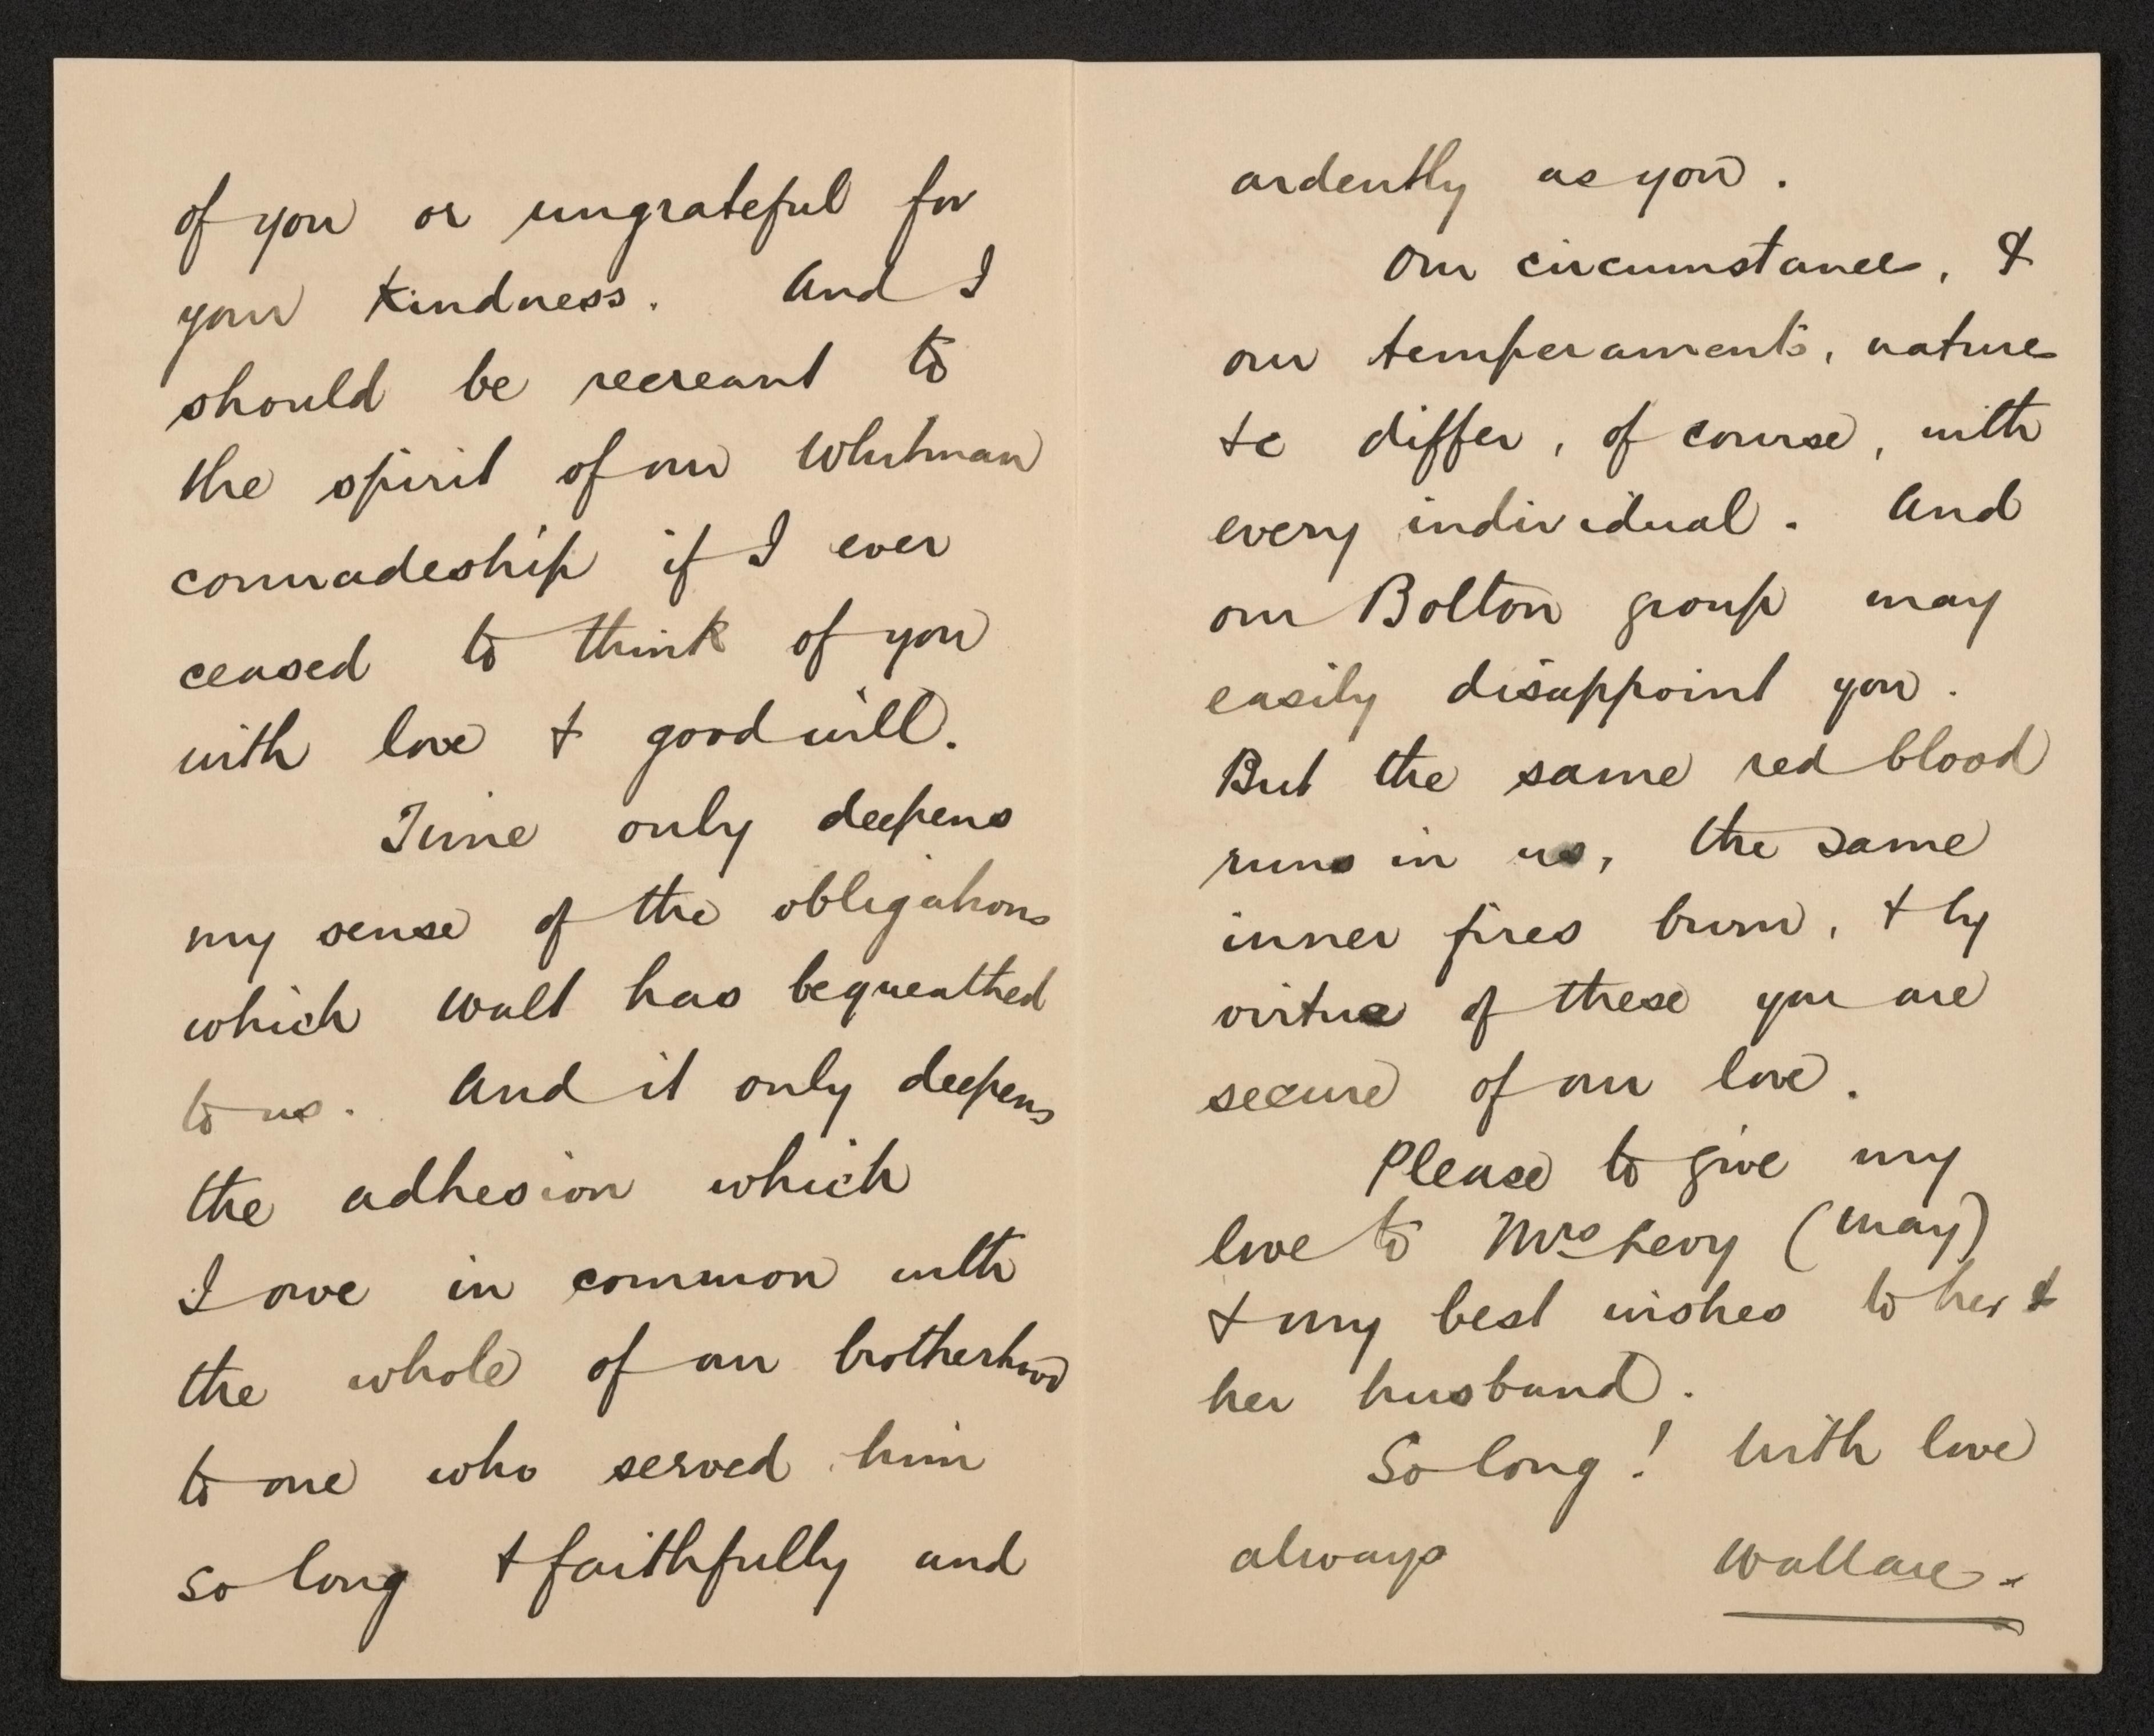 of you or ungrateful for
your kindness. And I
should be recreant to
the spirit of our Whitman
comradeship if I ever
ceased to think of you
with love & goodwill.
Time only deepens
my sense of the obligations
which Walt has bequeathed
to us. And it only deepens
the adhesion which
I owe in common with
the whole of our brotherhood
to one who served him
so long & faithfully and
ardently as you.
Our circumstances, &
our temperaments, natures
to differ, of course, with
every individual. And
our Bolton group may
easily disappoint you.
But the same red blood
runs in us, the same
inner fires burn, & by
virtue of these you are
secure of our love.
Please to give my
love to Mrs Levy (May)
& my best wishes to her &
her husband.
So long! With love
always Wallace.